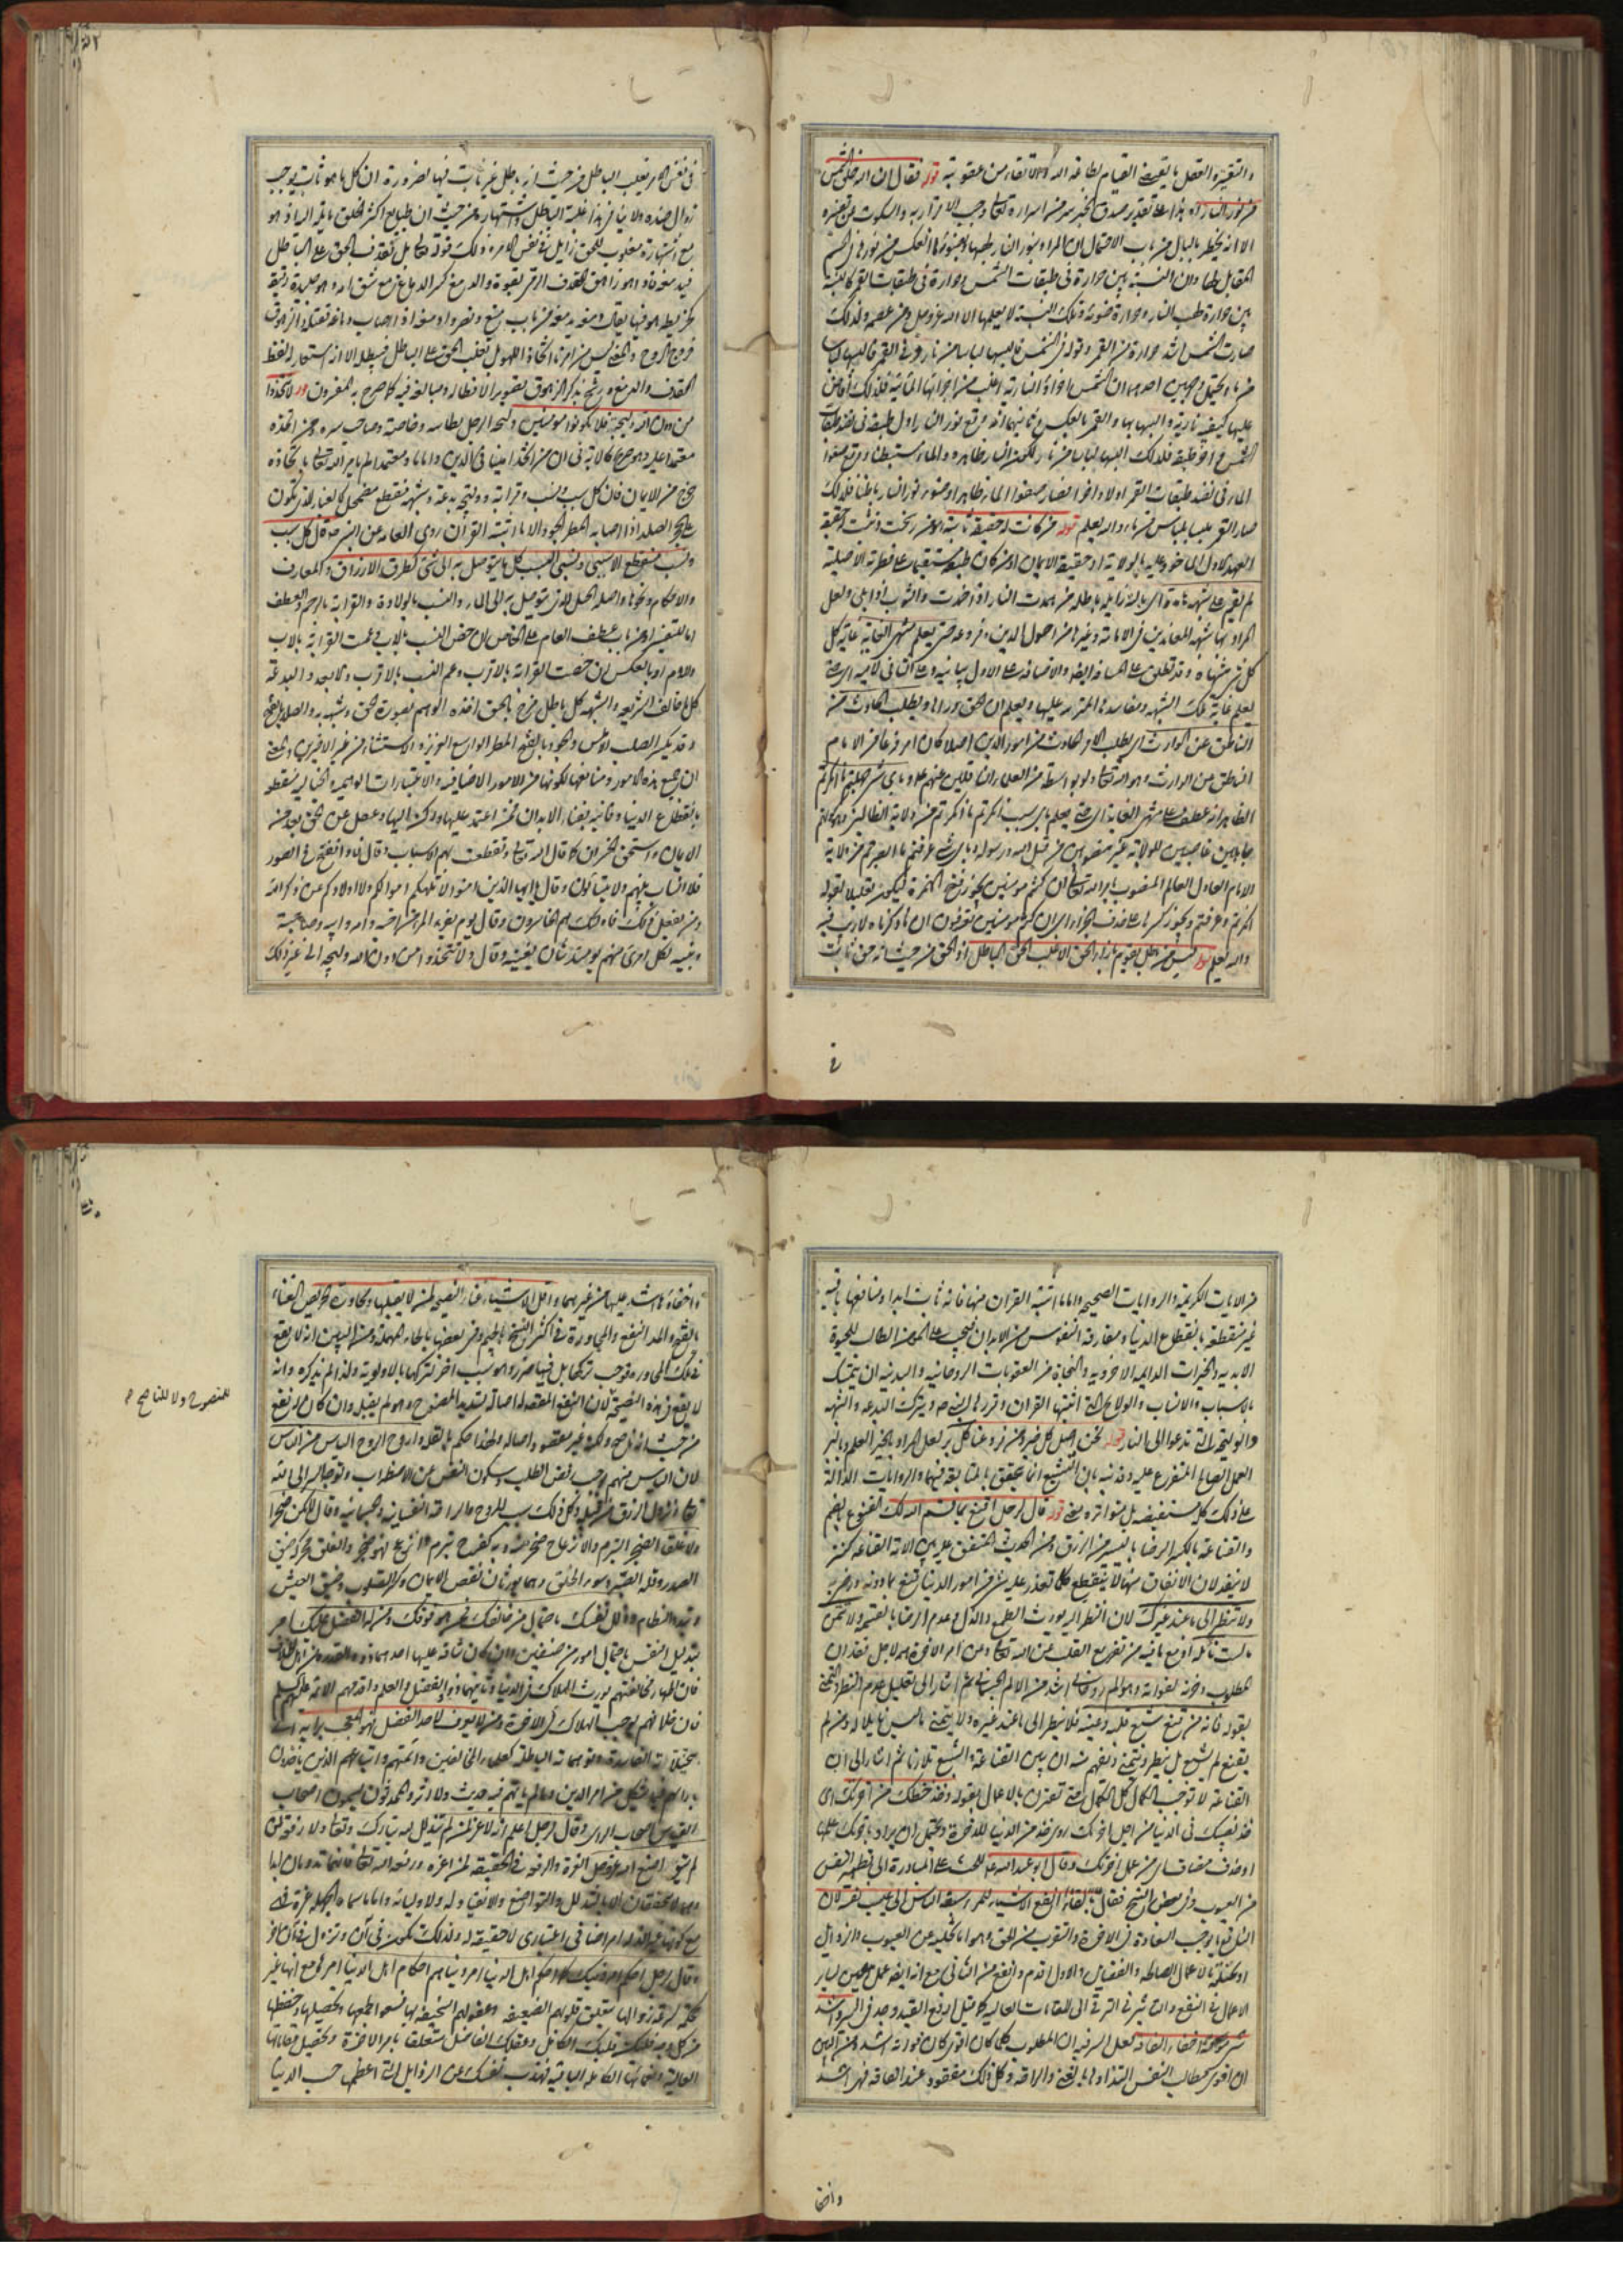 والتقية والعقل بالتقية القيام لطاعة الله والاتقاء من عقوبته قوله فقال ان الله خلق الشمس
من نور النار اه هذا على تقدير صدق الخبر سر من اسراره تعالى وجب الاقرار به والسكوت عن تفسيره
الا انه يخطر بالبال من باب الاحتمال ان المراد بنور النار لهبها وبضوئها ما انعكس من نورها في الجسم
المقابل لها وان النسبة بين حرارة في طبقات الشمس وحرارة في طبقات القمر كالنسبة
بين حرارة لهب النار وحرارة ضوئه وتلك النسبة لا يعلمها الا الله عز وجل ومن عصمه ولذلك
صارت الشمس اشد حرارة من القمر وقوله في الشمس فالبسها لباسا من نار وفي القمر فالبسها لباسا
من ماء يحتمل وجهين احدهما ان الشمس اجزاؤ النارية اغلب من اجزائها المائية فلذلك افاض
عليها كيفية نارية والبسها بها والقمر بالعكس وثانيهما انه وقع نور النار اول طبقة في نضد طبقات
الشمس وآخر طبقة فلذلك البسها لباسا من نار لكون النار ظاهره والماء مستبطنا ووقع صفو
الماء في نضد طبقات القمر اولا وآخرا فصار صفو الماء ظاهرا وضوء نور النار باطنا فلذلك
صار القمر ملبسا بلباس من ماء والله يعلم قوله من كانت له حقيقة ثابتة اه من رسخت وثبتت له حقيقة
العهد الاول الماخوذ عليه بالولاية او حقيقة الايمان او من كان طبعه مستقيما على فطرته الاصلية
لم يقم على شبهة هامدة اى بالية زايلة باطلة من همدت النار اذا خمدت والثوب اذا بلى ولعل
المراد بها شبهة المعاندين في الامامة وغيرها من اصول الدين وفروعه حتى يعلم منتهى الغاية غاية كل
كل شئ منتهاه وقد تطلق على المسافة ايضا والاضافة على الاول بيانية وعلى الثاني لامية اى حتى
يعلم غاية تلك الشبهة ومفاسدها المترتبة عليها ويعلم ان الحق وراءها ويطلب الحادث من
الناطق عن الوارث اى يطلب الامر الحادث من امور الدين اصلا كان او فرعا من الامام
الناطق عن الوارث وهو الله تعالى ولو بواسطة من العلماء الناقلين عنهم علومه وباى شئ جهلتم ما انكرتم
الظاهر انه عطف على منتهى الغاية اى حتى يعلم باى سبب انكرتم ما انكرتم من ولاية الظالمين وهم كانوا
جاهلين غاصبين للولاية غير منصوبين من قبل الله ورسوله وباى شئ عرفتم ما ابصرتم من ولاية
الامام العادل العالم المنصوب بامر الله تعالى ان كنتم مومنين يجوز فتح الهمزة ليكون تعليلا لقوله
انكرتم وعرفتم ويجوز كسرها على حذف الجزاء اى ان كنتم مومنين تعرفون ان ما ذكرناه لا ريب فيه
والله يعلم قوله ليس من باطل يقوم بازاء الحق الا غلب الحق الباطل اذ الحق من حيث انه حق ثابت
في
في نفس الامر يغلب الباطل من حيث انه باطل غير ثابت فيها لضرورة ان كل ما هو ثابت يوجب
زوال ضده ولا ينافي هذا غلبة الباطل واشتهاره من حيث ان طبايع اكثر الخلق مايلة اليه اذ هو
مع اشتهاره مغلوب للحق زايل في نفس الامر وذلك قوله تعالى بل نقذف بالحق على الباطل
فيدمغه فاذا هو زاهق القذف الرمى بقوة والدمغ كسر الدماغ مع شق ام وهو جلدة رقيقة
كخريطة هو فيها يقال دمغه يدمغه من باب منع ونصر
خروج الروح والمعنى ليس من امرنا اتخاذ اللهو بل نغلب الحق على الباطل فيبطله الا انه استعار لفظ
القذف والدمغ ورشح بذكر الزهوق تصويرا لابطاله ومبالغة فيه كما صرح به المفسرون قوله لا تتخذوا
من دون الله وليجة فلا تكونوا مومنين وليجة الرجل بطانته وخاصته وصاحب سره ومن اتخذه
معتمدا عليه وهو
خرج من الايمان فان كل سبب ونسب وقرابة ووليجة وبدعة وشبهة منقطع مضمحل كالغبار الذى يكون
على الحجر الصلد اذا اصابه المطر الجود الا ما اثبته القرآن
ونسب منقطع الا سببي ونسبي السبب كل ما يتوصل به الى شئ كطرق الارزاق والمعارف
والاحكام ونحوها واصله الحبل الذى يتوصل به الى الماء والنسب بالولادة والقرابة بالرحم والعطف
اما للتفسير او من باب عطف العام على الخاص ان خص النسب بالاب وعمت القرابة بالاب
والام او بالعكس ان خصت القرابة بالاقرب وعم النسب بالاقرب والابعد والبدعة
كل ما خالف الشريعة والشبهة كل باطل مزج بالحق اخذه الوهم بصورة الحق وشبهه به والصلد بالفتح
وقد يكسر الصلب الاملس والجود بالفتح المطر الواسع الغزير والاستثناء من غير الاخيرين والمعنى
ان جميع هذه الامور ومنافعها لكونها من الامور الاضافية والاعتبارات الوهمية والخيالية منقطعة
بانقطاع الدنيا وفانية بفناء الابدان فمن اعتمد عليها وركن اليها وغفل عن الحق بعد من
الايمان واستحق الخسران كما قال الله تعالى وتقطعت بهم الاسباب وقال فاذا نفخ في الصور
فلا انساب بينهم ولا يتسائلون وقال يا ايها الذين امنوا لا تلهكم اموالكم ولا اولادكم عن ذكر الله
ومن يفعل ذلك فاولئك هم الخاسرون وقال يوم يفر المرء من اخيه وامه وابيه وصاحبته
وبنيه لكل امرئ منهم يومئذ شأن يغنيه وقال ولا تتخذوا من دون الله وليجة الى غير ذلك
من الايات الكريمة والروايات الصحيحة واما ما اثبته القرآن منها فانه ثابت ابدا ومنافعها باقية
غير منقطعة بانقطاع الدنيا ومفارقة النفوس من الابدان فيجب على المومن الطالب للحيوة
الابدية والخيرات الدائمة الاخروية والنجاة من العقوبات الروحانية والبدنية ان يتمسك
بالاسباب والانساب والولايج التي اثبتها القرآن وقررها ويترك البدعة والشبهة
والوليجة التي تدعوا الى النار قوله نحن اصل كل خير ومن فروعنا كل بر لعل المراد بالخير العلم وبالبر
العمل الصالح المتفرع عليه وفيه تنبيه بان التشيع انما يتحقق بالمتابعة فيهما والروايات الدالة
على ذلك كثيرة مستفيضة بل متواترة معنى قوله قال لرجل اقنع بما قسم الله لك القنوع بالضم
والقناعة بالكسر الرضا باليسير من الرزق ومن الحديث المتفق عليه بين الامة القناعة كنز
لا ينفد لان الانفاق منها لا ينقطع كلما تعذر عليه شئ من امور الدنيا قنع بما دونه ورضى به
ولا تنظر الى ما عند غيرك لان النظر اليه يورث الطمع والذل وعدم الرضا بالقسمة ولا تتمن
ما لست نائله اذ مع ما فيه من تفريغ القلب عن الله تعالى وعن امر الآخرة هم لاجل فقدان
المطلوب وحزن لفواته وهو الم روحاني اشد من الالم الجسماني ثم اشار الى تعليل عدم النظر والتمنى
بقوله فانه من قنع شبع قلبه وعينه فلا ينظر الى ما عند غيره ولا يتمنى ما ليس نايلا له ومن لم
يقنع لم يشبع بل ينظر ويتمنى ويفهم منه ان بين القناعة والشبع تلازما ثم اشار الى ان
القناعة لا توجب الكمال كل الكمال حتى تقترن بالاعمال بقوله وخذ حظك من آخرتك اى
خذ نصيبك في الدنيا من اجل آخرتك
او حذف مضاف اى من عمل آخرتك وقال ابو عبد الله ع للحث على المبادرة الى تطهير النفس
من العيوب وفى بعض النسخ فقال بالفاء انفع الاشياء للمرء سبقه الناس الى عيب نفسه لان
النافع ما يوجب السعادة في الآخرة والتقرب من الحق وهو اما تخلية عن العيوب والرذايل
او تحلية بالاعمال الصالحة والفضايل والاول اقدم وانفع من الثاني مع انه ايضا عمل معين لساير
الاعمال في النفع والتاثير في الترقى الى المقامات العالية كما قيل ارفع القيد وجد في السير واشد
شئ مؤنة اخفاء الفاقة لعل السر فيه ان المطلوب كلما كان اقوى كان فواته اشد ومن البين
ان اقوى مطالب النفس التذاذها بالغنى والراحة وكل ذلك مفقود عند الفاقة فهى اشد
واخفا
واخفاؤها اشد عليها من غيرهما واقل الاشياء غناء النصيحة لمن لا يقبلها ومجاورة الحريص الغناء
بالفتح والمد النفع والمجاورة في اكثر النسخ بالجيم وفى بعضها بالحاء المهملة ومن البين انه لا نفع
في تلك المجاورة
لا نفع في هذه النصيحة لان النفع المقصود اصالة تسديد المنصوح وهو لم يقبل وان كان له نفع
من حيث انه ناصح ولكنه غير مقصود اصالة ولهذا حكم بالقلة واروح الروح الياس من الناس
لان الياس منهم يوجب رفض الطلب وسكون النفس عن الاضطراب وتوجهها الى الله
تعالى ونزول الرزق من قبله وكل ذلك سبب للروح والراحة النفسانية والجسمانية وقال لا تكن ضجرا
ولا غلقا الضجر التبرم والانزعاج ضجر منه وبه كفرح تبرم وانزعج فهو ضجر والغلق محركة ضيق
الصدر وقلة الصبر وسوء الخلق وهما يورثان نقص الايمان وكرة القلوب وضيق العيش
وتبدد النظام وذلل نفسك باحتمال من خالفك ممن هو فوقك ومن له الفضل عليك امر
بتذليل النفس باحتمال امور من صنفين وان كان شاقة عليها احدهما ذوو القدرة من اهل الخلاف
فان اظهار مخالفتهم يورث الهلاك في الدنيا وثانيهما ذووا الفضل والعلم واقدمهم الائمة عليهم السلم
فان خلافهم يوجب الهلاك في الآخرة ومن لا يعرف لاحد الفضل فهو المعجب برايه اى
بتخيلاته الفاسدة وتوهماته الباطلة كعلماء المخالفين وائمتهم واتباعهم الذين ياخذون
بآرائهم فيما اشكل من امر الدين وما لم ياتهم فيه حديث ولا اثر والمحدثون يسمون اصحاب
القياس اصحاب الراى وقال لرجل اعلم انه لا عز لمن لم يتذلل لله تبارك وتعالى ولا رفعة لمن
لم يتواضع لله عز وجل العزة والرفعة في الحقيقة لمن اعزه ورفعه الله تعالى فانهما تدومان ابدا
وهما لا يتحققان الا بالتذلل والتواضع والانقياد له ولاوليائه واما ما سماه الجهلة عزة فهى
مع كونها عين الذلة امر اضافى اعتبارى لا حقيقة له ولذلك يحصل في آن ويزول في آن آخر
وقال لرجل احكم امر دينك كما احكم اهل الدنيا امر دنياهم احكام اهل الدنيا امرهم مع انها غير
محكمة لسرعة زوالها بتعلق قلوبهم الضعيفة وعقولهم السخيفة بها فسعوا لطلبها وتحصيلها وحفظها
من كل وجه فعلق قلبك الكامل وعقلك الفاضل متعلقا بامر الآخرة وتحصيل مقاماتها
العالية ونعمائها الكاملة الباقية فهذب نفسك عن الرذايل التي اعظمها حب الدنيا
للمنصوح ولا للناصح م